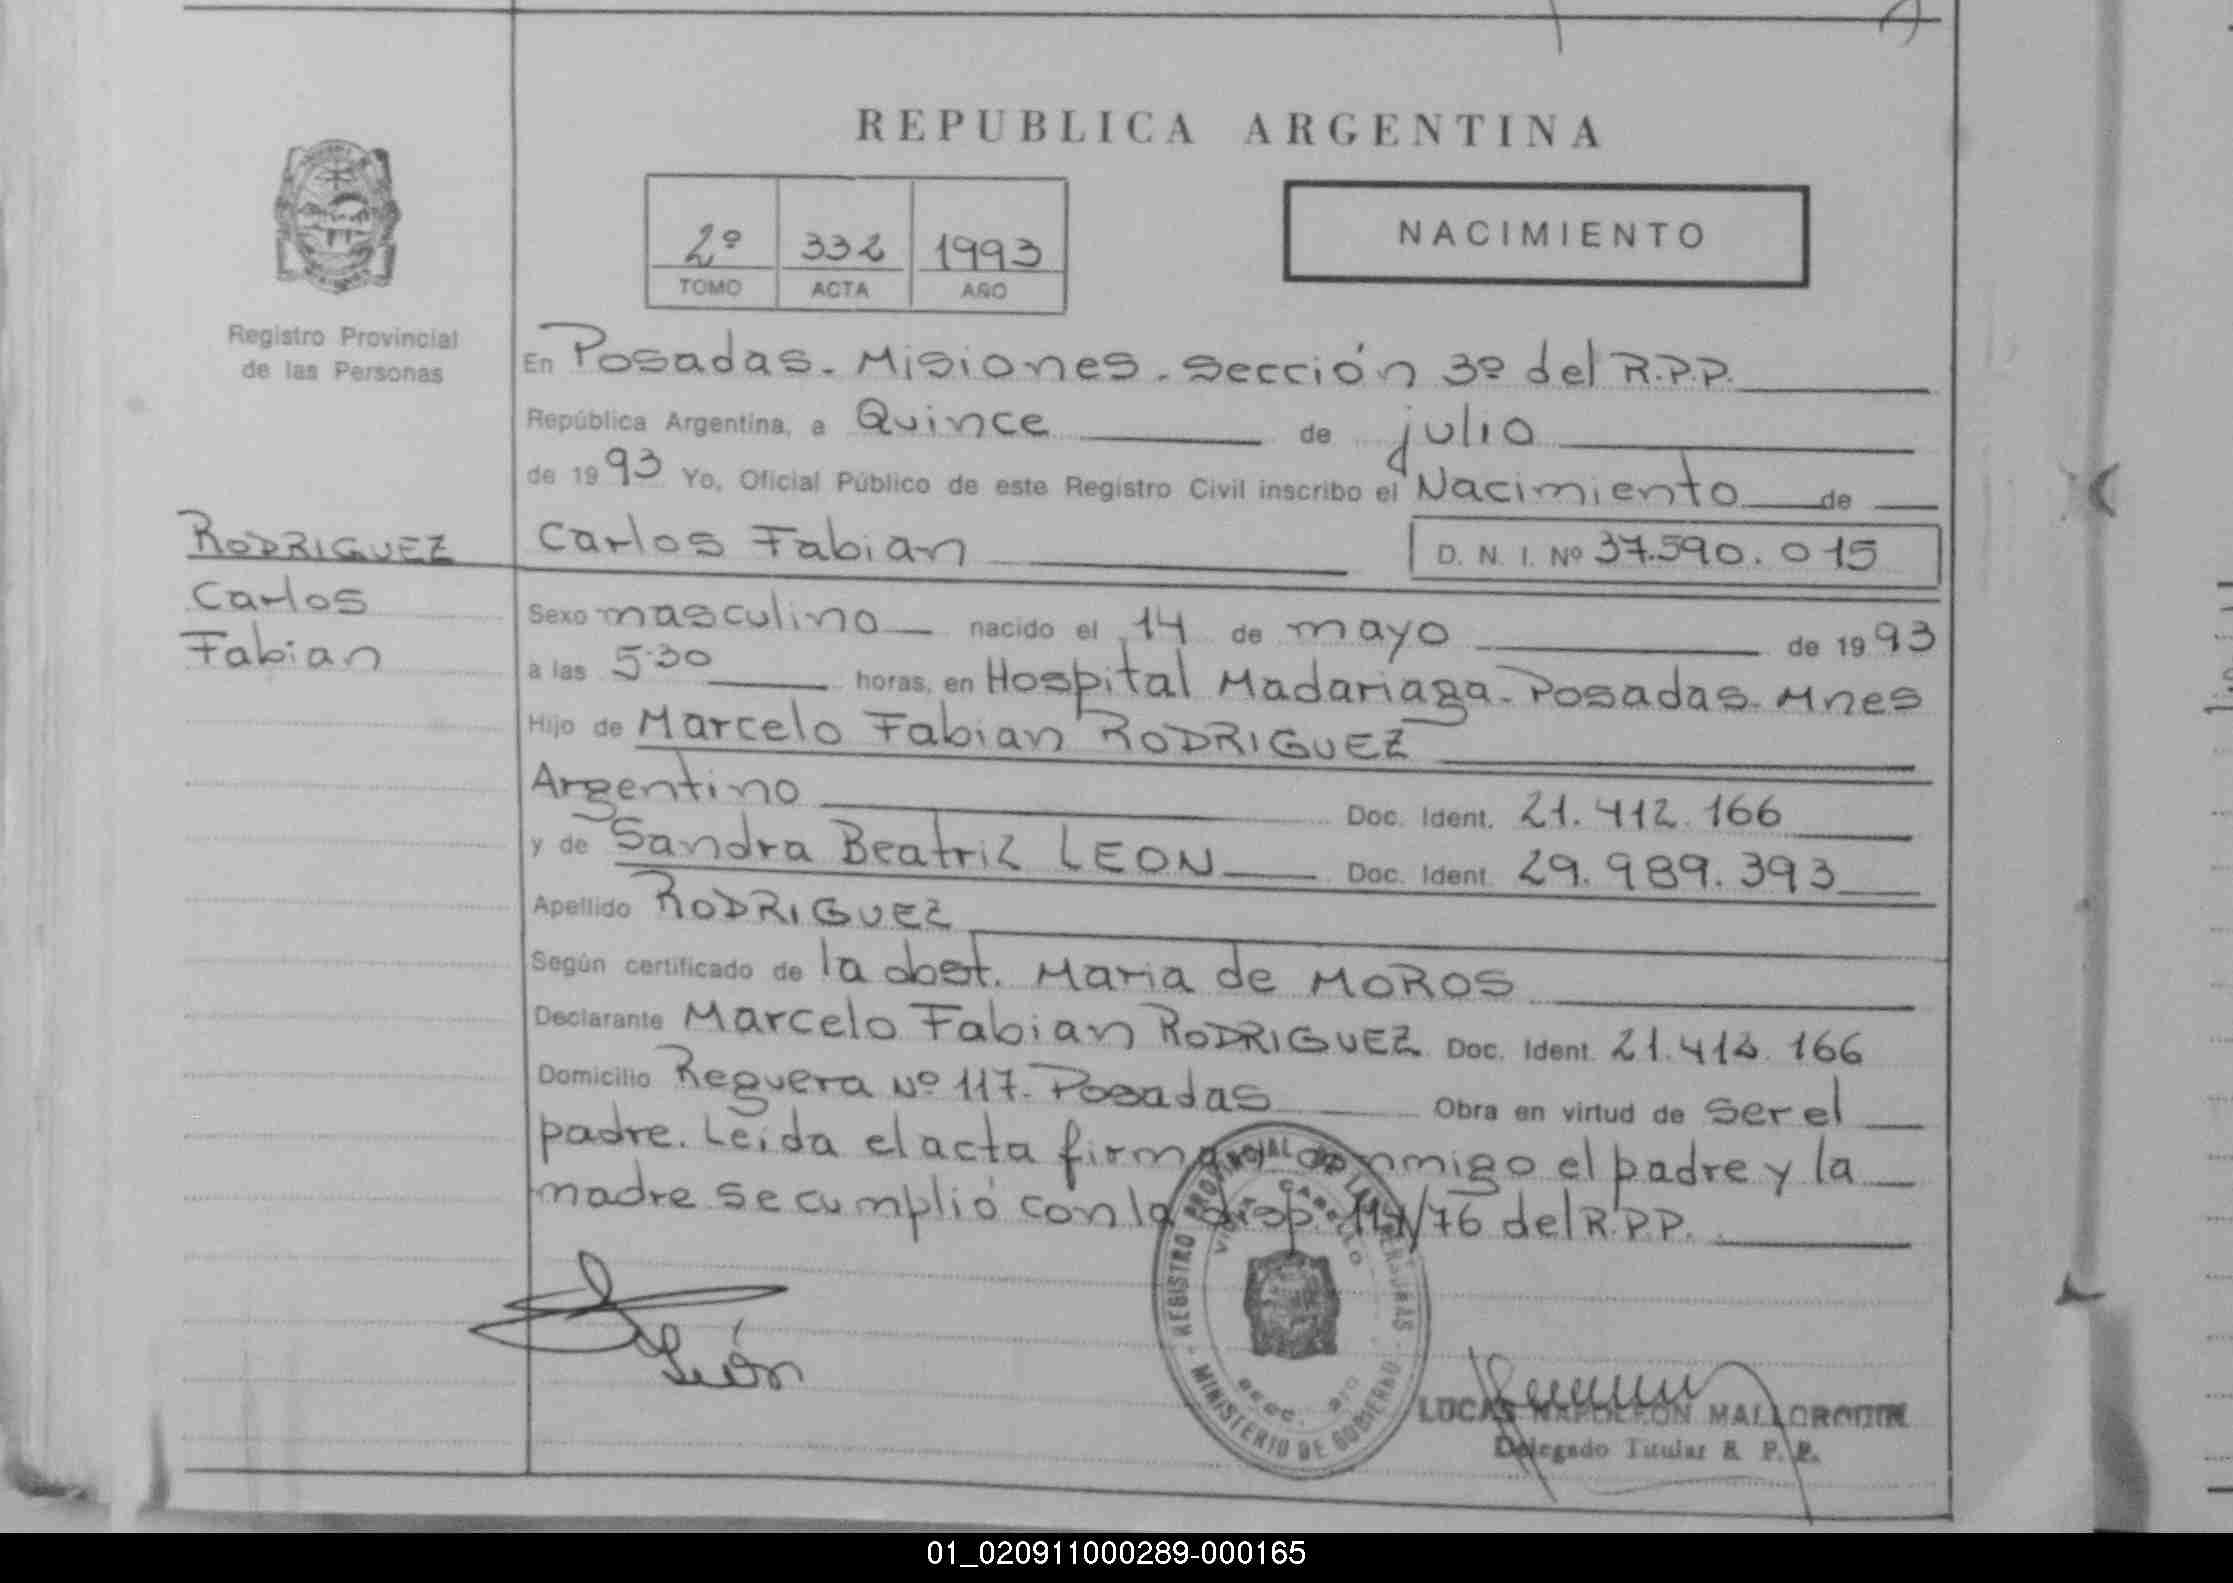 REPUBLICA ARGENTINA
2º 332 1993
TOMO ACTA AÑO
NACIMIENTO
Registro Provincial
de las Personas
En Posadas. Misiones. Sección 3º del R.P.P.
República Argentina, a Quince de julio
de 1993 Yo, Oficial Público de este Registro Civil inscribo el Nacimiento de
Carlos Fabian D. N. I. Nº 37.590.015
RODRIGUEZ
Carlos
Fabian
Sexo masculino nacido el 14 de mayo de 1993
a las 5·30 horas, en Hospital Madariaga. Posadas. Mnes
Hijo de Marcelo Fabian RODRIGUEZ
Argentino Doc. Ident. 21.412.166
y de Sandra Beatriz LEON Doc. Ident. 29.989.393
Apellido RODRIGUEZ
Según certificado de la obst. Maria de MOROS
Declarante Marcelo Fabian RODRIGUEZ Doc. Ident. 21.412.166
Domicilio Reguera Nº 117. Posadas Obra en virtud de ser el
padre. Leida el acta firma conmigo el padre y la
madre se cumplió con la disp. /76 del R.P.P.
REGISTRO PROVINCIAL DE LAS PERSONAS
MINISTERIO DE GOBIERNO
León
LUCAS NAPOLEON MALLORQUIN
Delegado Titular R. P. P.
01_020911000289-000165